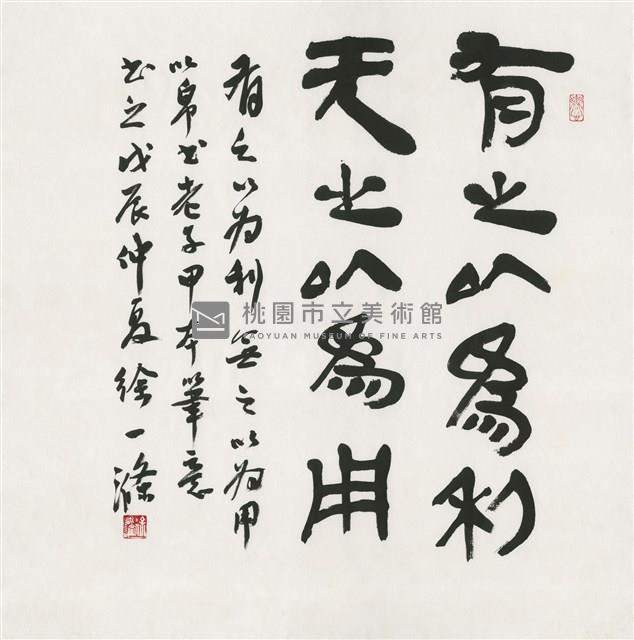 有之以為利
无之以為用
有之以为利無之以為用
以帛书老子甲本筆意
书之戊辰仲夏徐一滌
桃園市立美術館
TAOYUAN MUSEUM OF FINE ARTS